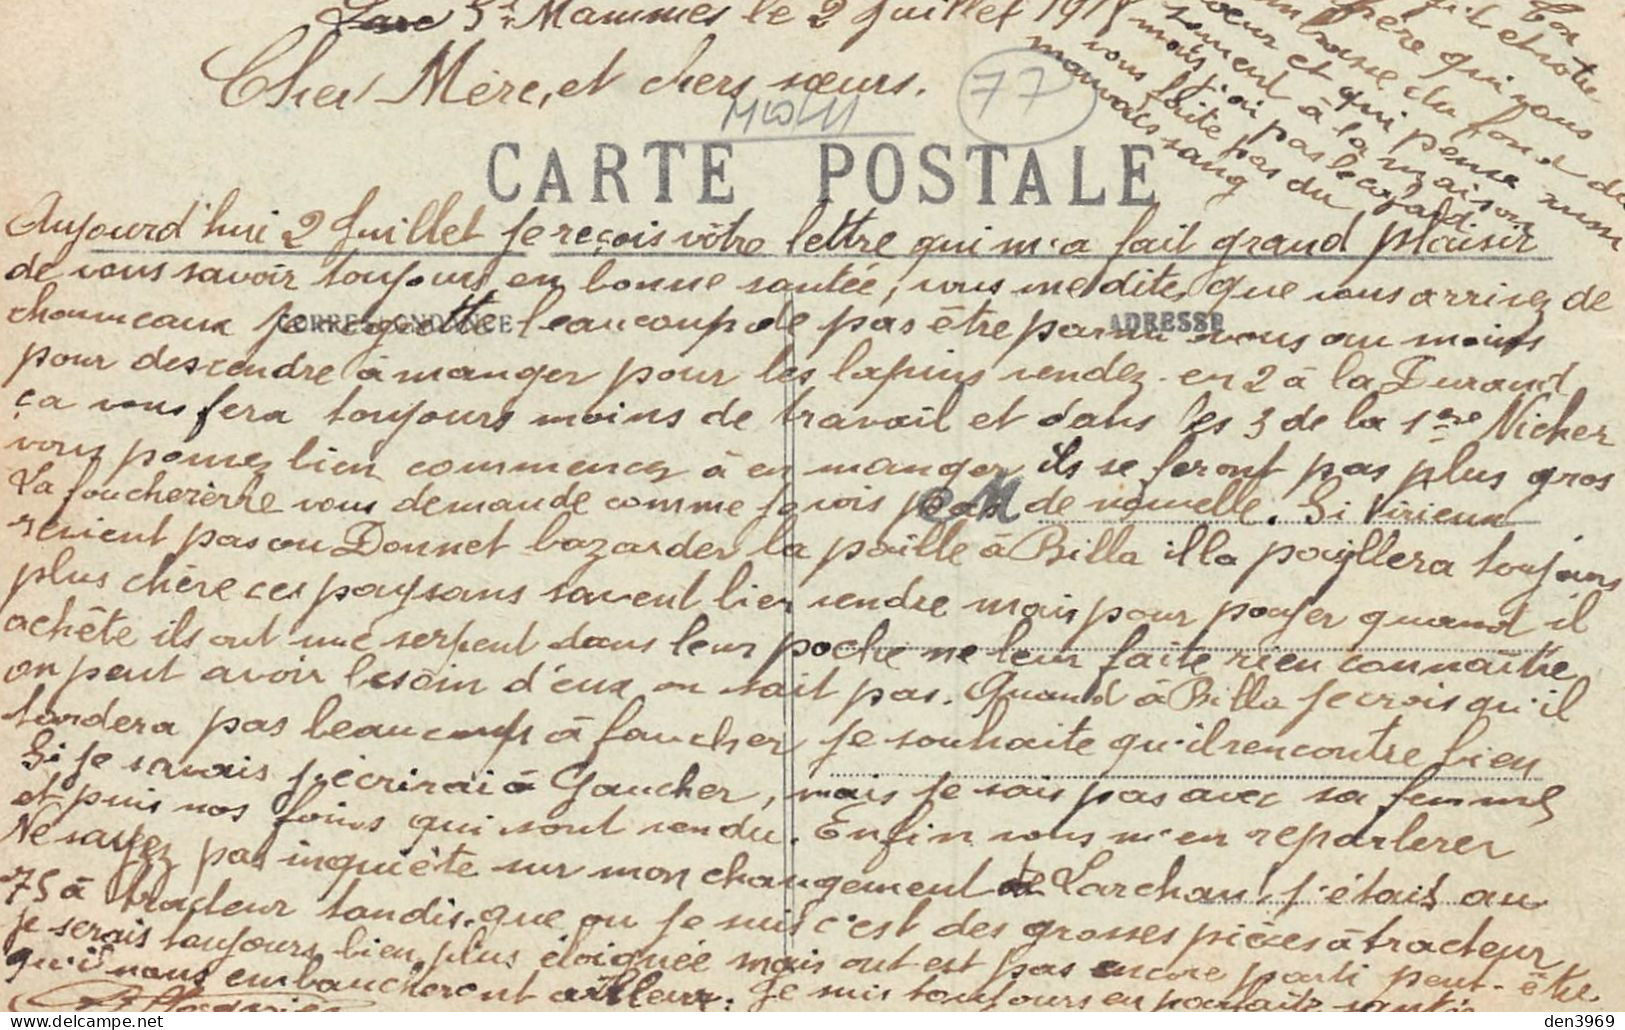 St Mammes le 2 Juillet 191
Cher Mère, et chers sœurs.
77
CARTE POSTALE
mais j'ai pas le cafard
vous faite pas du
mauvais sang
Aujourd'hui 2 Juillet je reçois vôtre lettre qui m'a fait grand plaisir
de vous savoir toujours en bonne santée, vous me dite que vous arrivez de
CORRESPONDANCE
ADRESSE
beaucoup de pas être parmi vous au moins
pour descendre à manger pour les lapins vendez-en 2 à la Durand
ça vous fera toujours moins de travail et dans les 3 de la 1ere Nicher
vous pouvez bien commencez à en manger ils se feront pas plus gros
La vous demande comme je vois pas de nouvelle. Si Virieux
revient pas ou Donnet bazarder la paille à Billa il la payera toujours
plus chère ces paysans savent bien vendre mais pour payer quand il
achête ils ont une serpent dans leur poche ne leur faite rien connaître
on peut avoir besoin d'eux on sait pas. Quand à Billa je crois qu'il
tardera pas beaucoup à faucher je souhaite qu'il rencontre bien
Si je savais j'écrirai à Gaucher, mais je sais pas avec sa femme
et puis nos foins qui sont vendu. Enfin vous m'en reparlerer
Ne sayez pas inquiête sur mon changement de Larchant j'étais au
75 à tracteur tandis-que ou je suis c'est des grosses pièces à tracteur
je serais toujours bien plus éloignée mais ont est pas encore parti peut-être
qu'il nous embaucheront ailleur. Je suis toujours en parfaite santé
den3969